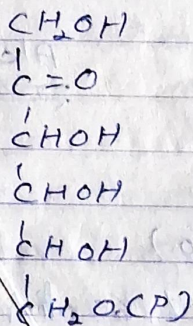 CH₂OH
C=O
CHOH
CHOH
CHOH
CH₂O.(P)